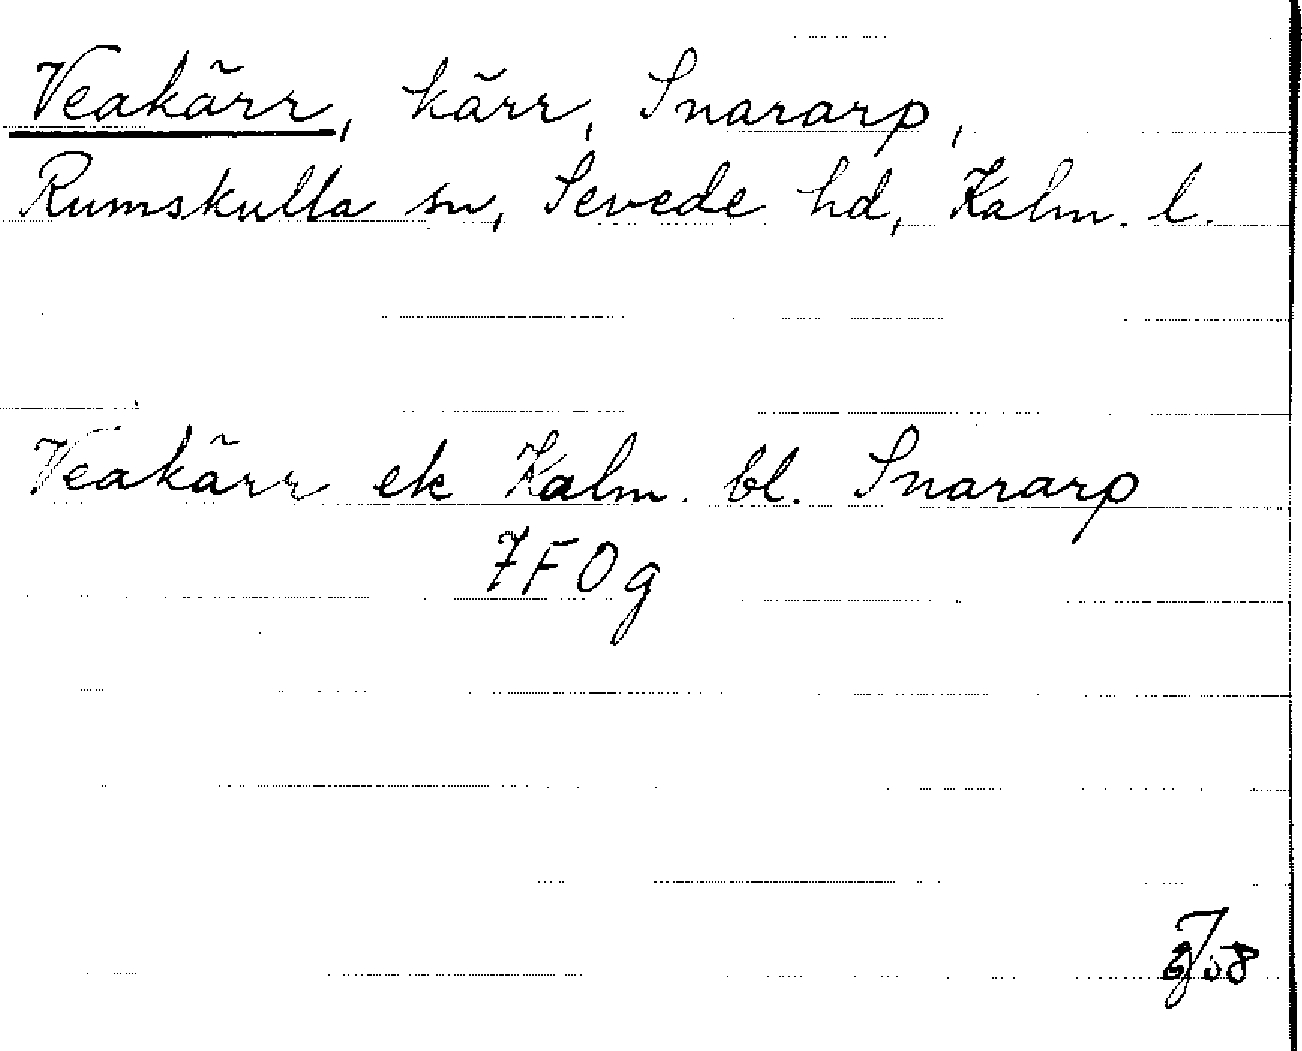 Veakärr, kärr, Snararp,
Rumskulla sn, Sevede hd, Kalm. l.
Veakärr ek Kalm. bl. Snararp
7F0g